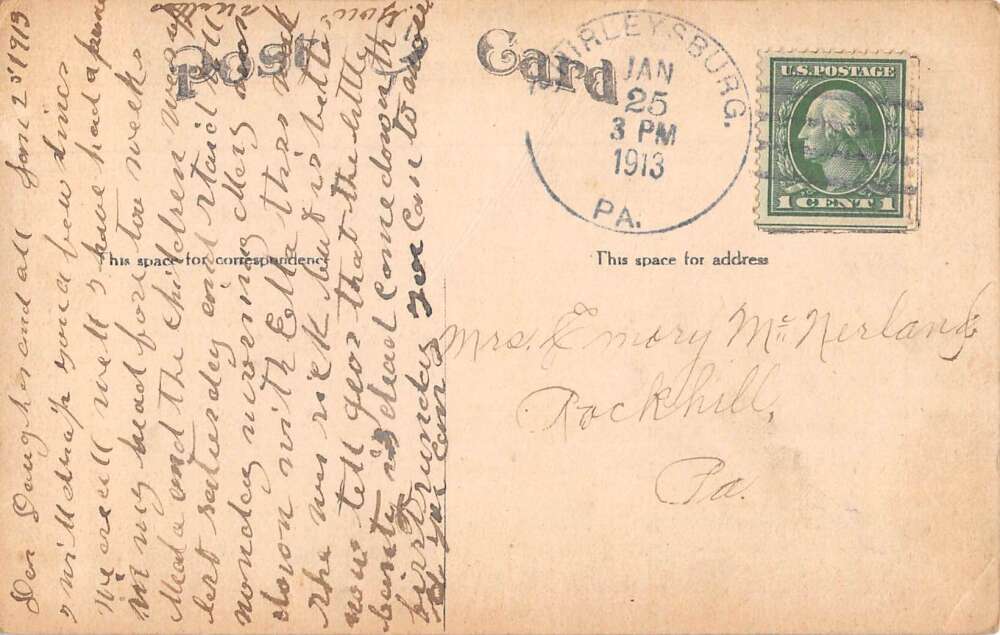 Post Card
SHIRLEYSBURG.
JAN
25
3 PM
1913
PA.
U.S. POSTAGE
1 CENT 1
This space for correspondence
This space for address
Mrs. Emory Mc Nerland
Rockhill,
Pa.
Dear Daughter and all Jan 25 1913
I will drop you a few lines
We are all well I have had a pain
in my head for two weeks
Meda and the children was up
last saturday and staid till
monday morning Mery was
down with Ella this week
she was sick but is better
now tell geor that the little
is dead come down the
first Sunday you can